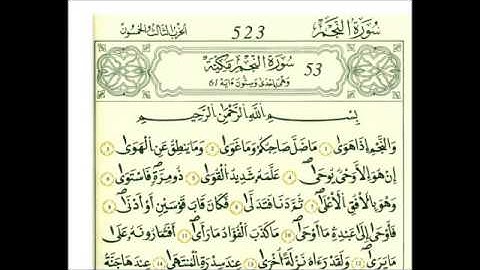 سُورَةُ النَّجْمِ 523 الحزب الثالث والخمسون
سُورَةُ النَّجْمِ مَكِّيَّة 53
وَهْيَ إِحْدَى وَسِتُّونَ ءَايَة 61
بِسْمِ اللَّهِ الرَّحْمَٰنِ الرَّحِيمِ
وَالنَّجْمِ إِذَا هَوَىٰ 1 مَا ضَلَّ صَاحِبُكُمْ وَمَا غَوَىٰ 2 وَمَا يَنطِقُ عَنِ الْهَوَىٰ 3
إِنْ هُوَ إِلَّا وَحْيٌ يُوحَىٰ 4 عَلَّمَهُ شَدِيدُ الْقُوَىٰ 5 ذُو مِرَّةٍ فَاسْتَوَىٰ 6
وَهُوَ بِالْأُفُقِ الْأَعْلَىٰ 7 ثُمَّ دَنَا فَتَدَلَّىٰ 8 فَكَانَ قَابَ قَوْسَيْنِ أَوْ أَدْنَىٰ 9
فَأَوْحَىٰ إِلَىٰ عَبْدِهِ مَا أَوْحَىٰ 10 مَا كَذَبَ الْفُؤَادُ مَا رَأَىٰ 11 أَفَتُمَارُونَهُ عَلَىٰ
مَا يَرَىٰ 12 وَلَقَدْ رَءَاهُ نَزْلَةً أُخْرَىٰ 13 عِندَ سِدْرَةِ الْمُنتَهَىٰ 14 عِندَهَا جَنَّةُ